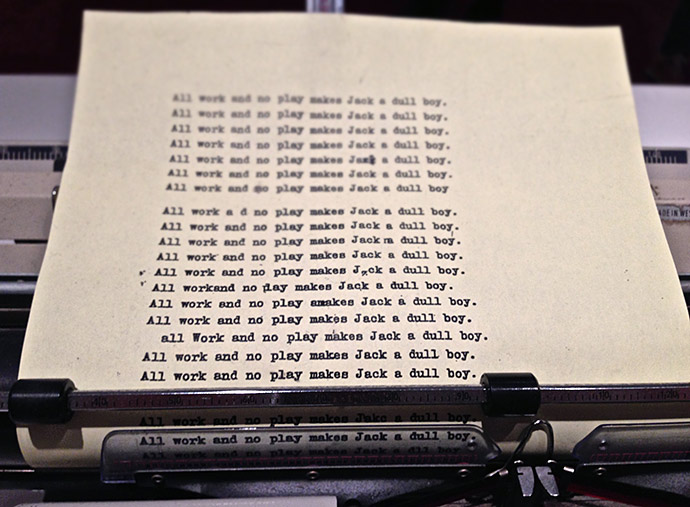 All work and no play makes Jack a dull boy.
All work and no play makes Jack a dull boy.
All work and no play makes Jack a dull boy.
All work and no play makes Jack a dull boy.
All work and no play makes a dull boy.
All work and no play makes Jack a dull boy.
All work and no play makes Jack a dull boy
All work a d no play makes Jack a dull boy.
All work and no play makes Jack a dull boy.
All work and no play makes Jack m dull boy.
All work and no play makes Jack a dull boy.
All work and no play makes Jack a dull boy.
All workand no play makes Jack a dull boy.
All work and no play amakes Jack a dull boy.
All work and no play makes Jack a dull boy.
all Work and no play makes Jack a dull boy.
All work and no play makes Jack a dull boy.
All work and no play makes Jack a dull boy.
All work and no play makes Jakc a dull boy.
All work and no play makes Jack a dull boy.
MADE IN WES